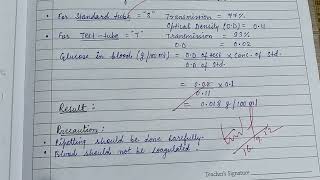 • For Standard tube = "S" Transmission = 77%
Optical Density (O.D) = 0.11
• For TEST-tube = "T" Transmission = 93%
O.D = 0.02
Glucose in blood (g/100 ml) = O.D of test × Conc. of Std.
O.D of Std.
= 0.02 × 0.1
0.11
= 0.018 g/100 ml
Result :
Precaution :
• Pipetting should be done carefully.
• Blood should not be coagulated.
Teacher's Signature